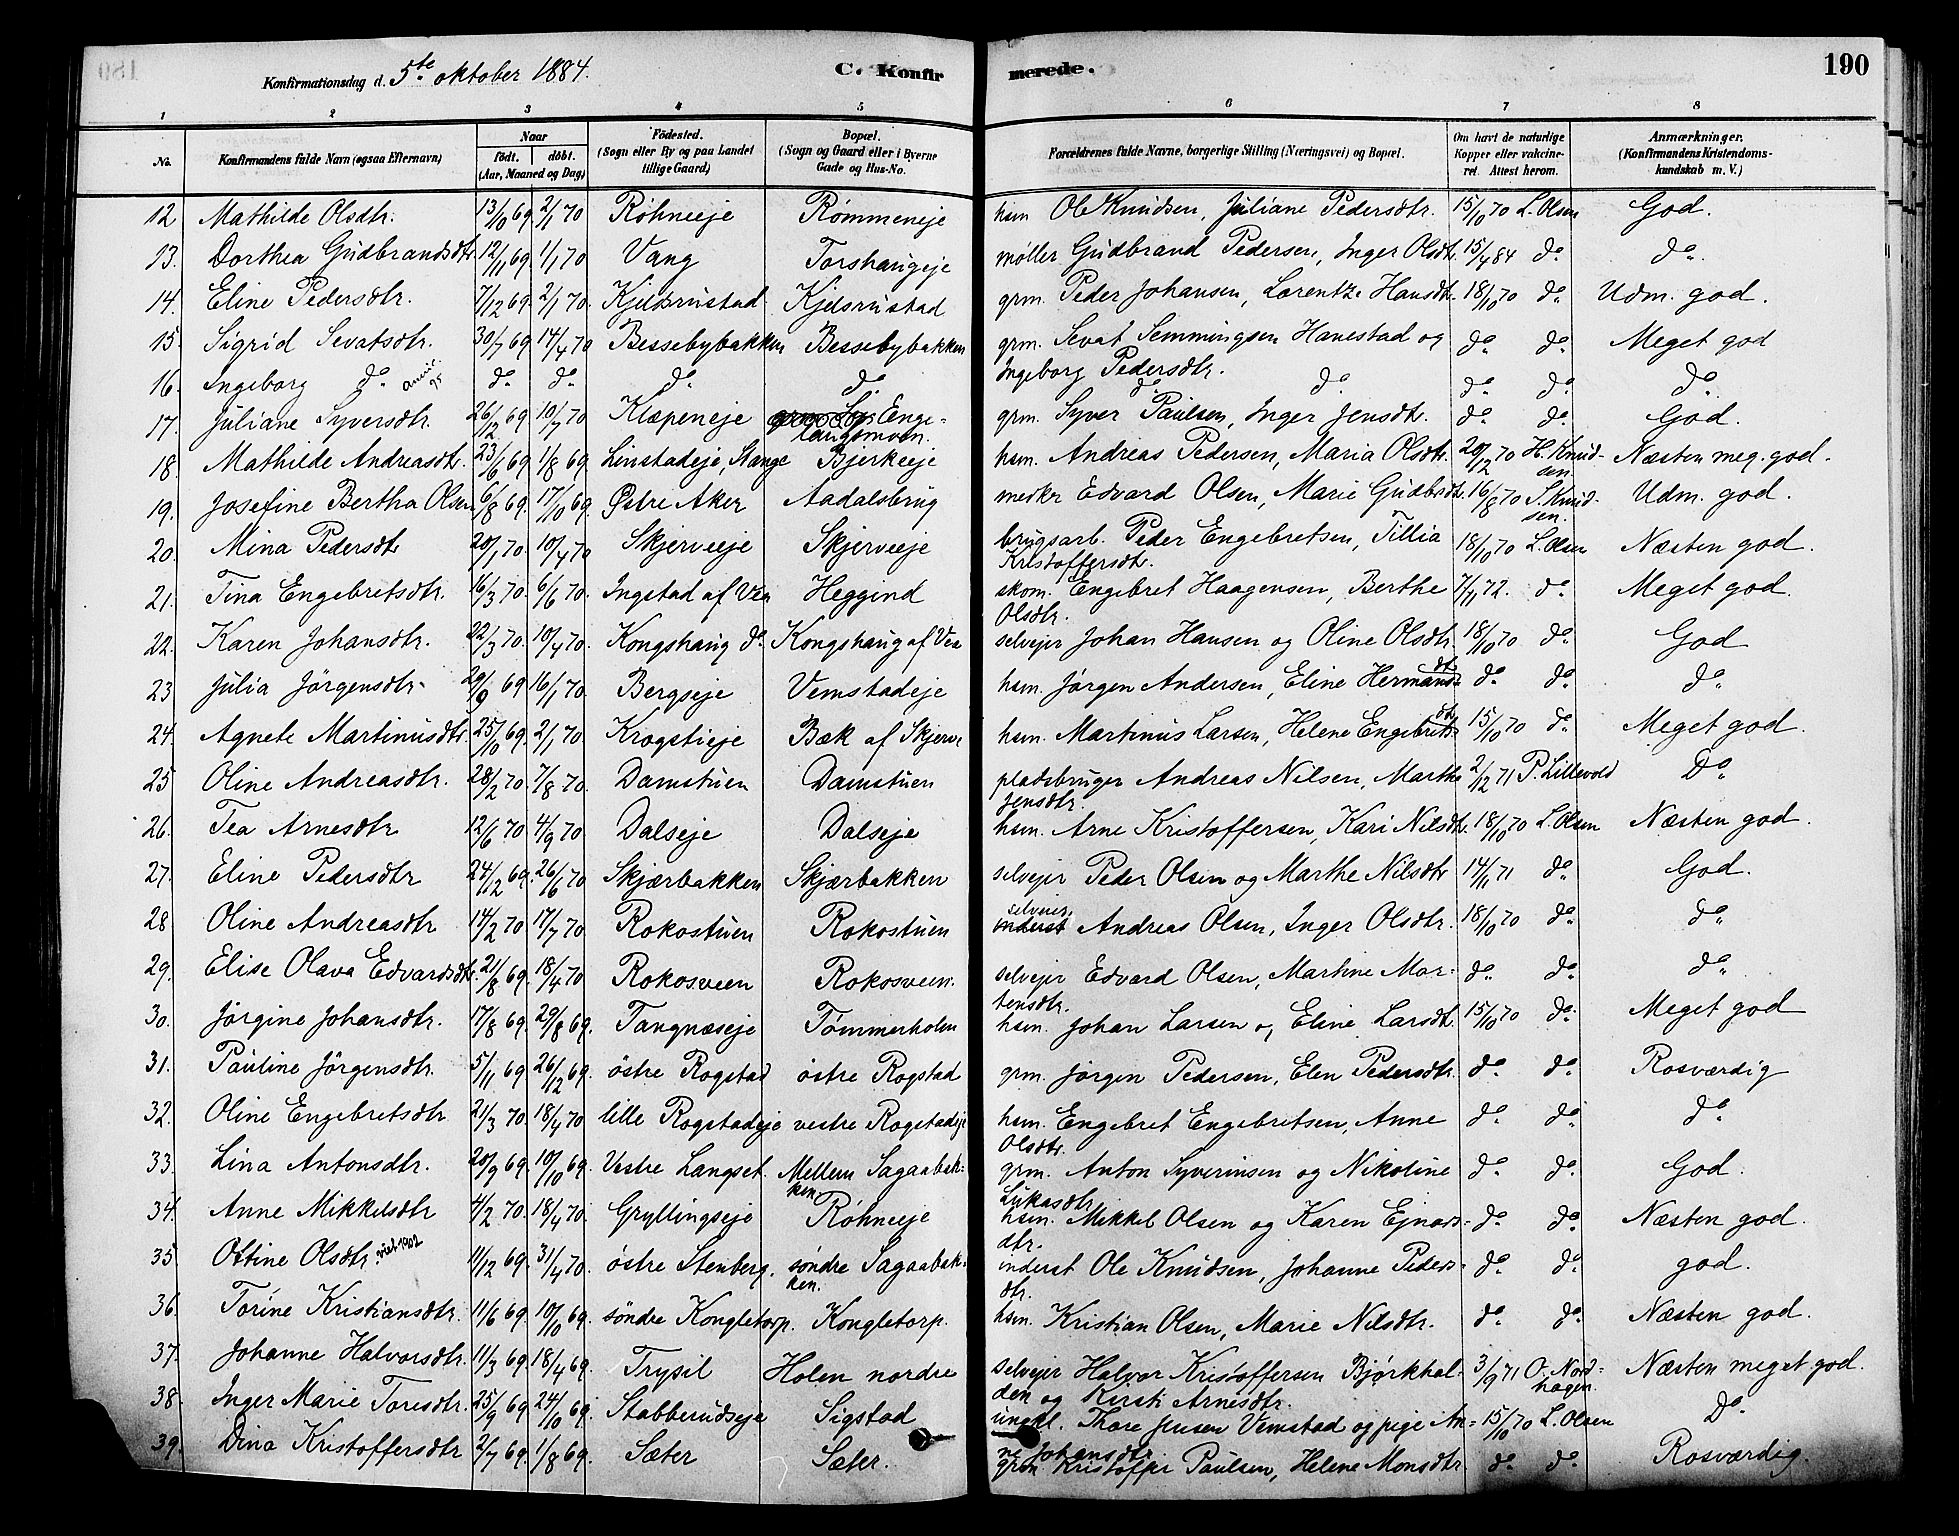 Konfirmationsdag d. 5te oktober 1884. C. Konfirmerede. 190
1 2 3 4 5 6 7 8
No. Konfirmandens fulde Navn (ogsaa Efternavn) Naar födt. döbt. (Aar, Maaned og Dag) Födested. (Sogn eller By og paa Landet tillige Gaard) Bopæl. (Sogn og Gaard eller i Byerne Gade og Hus-No. Forældrenes fulde Navne, borgerlige Stilling (Næringsvei) og Bopæl. Om havt de naturlige Kopper eller vakcineret. Attest herom. Anmærkninger. (Konfirmandens Kristendomskundskab m. V.)
12 Mathilde Olsdtr. 13/10 69 2/1 70 Röhneeje Rømmeneje hsm Ole Knudsen, Juliane Pedersdtr. 15/10 70 L. Olsen God.
13. Dorthea Gudbrandsdtr 12/11 69 1/1 70 Vang Torshaugeje møller Gudbrand Pedersen, Inger Olsdtr. 15/4 84 do do
14. Eline Pedersdtr. 7/12 69 2/1 70. Kjelsrustad Kjelsrustad grm. Peder Johansen, Lorentze Hansdtr. 18/10 70 do Udm. god.
15. Sigrid Sevatsdtr. 30/7 69 14/4 70 Bessebybakken Bessebybakken grm. Sevat Semmingsen Hanestad og do do Meget god
16. Ingeborg do do do do do Ingeborg Pedersdtr. do do do do do
17. Juliane Syversdtr. 26/12 69 10/7 70 Klæpeneje Engelaugsmoen. grm. Syver Paulsen, Inger Jensdtr. do do God.
18. Mathilde Andreasdtr. 23/6 69 1/8 69 Linstadeje, Stange Bjerkeeje hsm. Andreas Pedersen, Maria Olsdtr. 20/12 70 H. Knudsen Næsten meg. god.
19. Josefine Bertha Olsen 6/8 69. 17/10 69. Østre Aker Aadalsbrug Edvard Olsen, Marie Gudbrdtr. 16/8 70 S. Knudsen. Udm. god.
20. Mina Pedersdtr 20/1 70. 10/4 70 Skjerveeje Skjerveeje brugsarb. Peder Engebretsen, Tillia Kristoffersdtr. 18/10 70 L. Olsen Næsten god.
21. Tina Engebretsdtr. 16/3 70. 6/6 70. Ingstad af Vea Heggind skom. Engebret Haagensen, Berthe Olsdtr. 7/11 72. do Meget god.
22. Karen Johansdtr. 22/3 70. 10/4 70. Kongshaug do Kongshaug af Vea selvejer Johan Hansen og Oline Olsdtr. 18/10 70 do God
23 Julia Jörgensdtr. 29/9 69 16/1 70. Bergseje Vemstadeje hsm. Jørgen Andersen, Eline Hermansdtr do do do
24. Agnete Martinusdtr. 25/10 69. 2/1 70. Krogstieje Bæk af Skjerve hsm. Martinus Larsen, Helene Engebretsdtr 15/10 70 do Meget god.
25 Oline Andreasdtr. 28/2 70. 7/8 70. Damstuen Damstuen pladsbruger Andreas Nilsen, Marthe Jensdtr. 2/12 71 P. Lillevold Do
26. Tea Arnesdtr 12/6 70. 4/9 70 Dalseje Dalseje hsm. Arne Kristoffersen, Kari Nilsdtr. 18/10 70 L. Olsen Næsten god.
27. Eline Pedersdtr 24/12 69. 26/6 70 Skjærbakken Skjærbakken selvejer Peder Olsen og Marthe Nilsdtr 14/11 71 do God.
28 Oline Andreasdtr 14/2 70 17/7 70. Rokostuen Rokostuen selveier. inderst Andreas Olsen, Inger Olsdtr. 18/10 70 do do
29. Elise Olava Edvardsdtr. 21/8 69. 18/4 70 Rokosveen Rokosveen. selvejer Edvard Olsen, Martine Mortensdtr. do do do
30. Jørgine Johansdtr. 17/8 69. 29/8 69. Tangnæseje Tømmerholen hsm. Johan Larsen og Eline Larsdtr. 15/10 70 do Meget god
31. Pauline Jörgensdtr. 5/11 69 26/12 69. østre Rogstad østre Rogstad grm. Jørgen Pedersen, Elen Pedersdtr. do do Rosværdig
32. Oline Engebretsdtr 21/3 70. 18/4 70. lille Rogstadeje vestre Rogstadeje hsm. Engebret Engebretsen, Anne Olsdtr. do do do
33. Lina Antonsdtr. 20/9 69. 10/10 69. Vestre Langset. Mellem Sagaabakken grm. Anton Syverinsen og Nikoline Lukasdtr do do God.
34. Anne Mikkelsdtr 4/2 70. 18/4 70. Gryllingseje Röhneeje hsm. Mikkel Olsen og Karen Ejnarsdtr. do do Næsten god.
35 Ottine Olsdtr. viet 1902 11/12 69. 31/4 70. østre Stenberg. søndre Sagaabakken. inderst Ole Knudsen, Johanne Pedersdtr. do do god.
36. Torine Kristiansdtr. 11/6 69. 10/10 69. söndre Kongletorp. Kongletorp. hsm. Kristian Olsen, Marie Nilsdtr. do do Næsten god.
37. Johanne Halvorsdtr. 11/3 69. 18/4 69. Trysil Holen nordre selvejer Halvor Kristoffersen Bjørkhalden og Kirsti Arnesdtr. 3/9 71 O. Nordhagen. Næsten meget god.
38. Inger Marie Toresdtr. 25/9 69 24/10 69. Stabberudseje Sigstad ungkl. Thore Jensen Vemstad og pige Anne Johansdtr. 15/10 70 L. Olsen Do.
39. Dina Kristoffersdtr 2/7 69. 1/8 69. Sæter Sæter. grm Kristoffer Paulsen, Helene Monsdtr. do do Rosværdig.